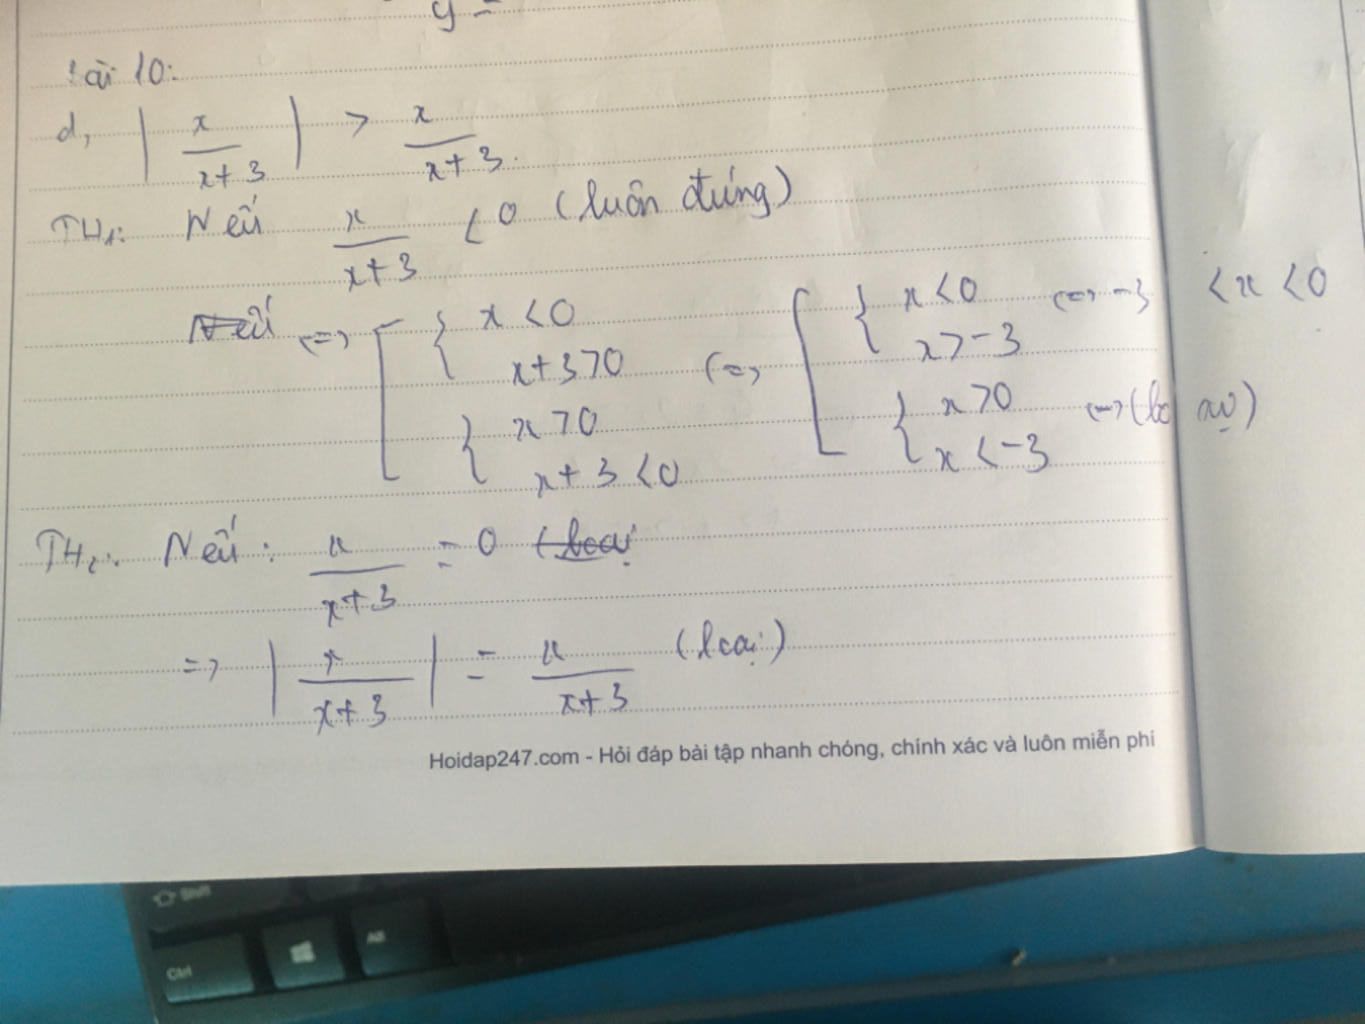 y =
Bài 10:
d, | x/(x+3) | > x/(x+3)
TH1: Nếu x/(x+3) < 0 (luôn đúng)
<=> [ { x < 0 <=> [ { x < 0 <=> -3 < x < 0
x+3 > 0 x > -3
{ x > 0 { x > 0 <=> (loại)
x+3 < 0 x < -3
TH2: Nếu: x/(x+3) = 0
=> | x/(x+3) | = x/(x+3) (loại)
Hoidap247.com - Hỏi đáp bài tập nhanh chóng, chính xác và luôn miễn phí
Shift
Ctrl
Alt